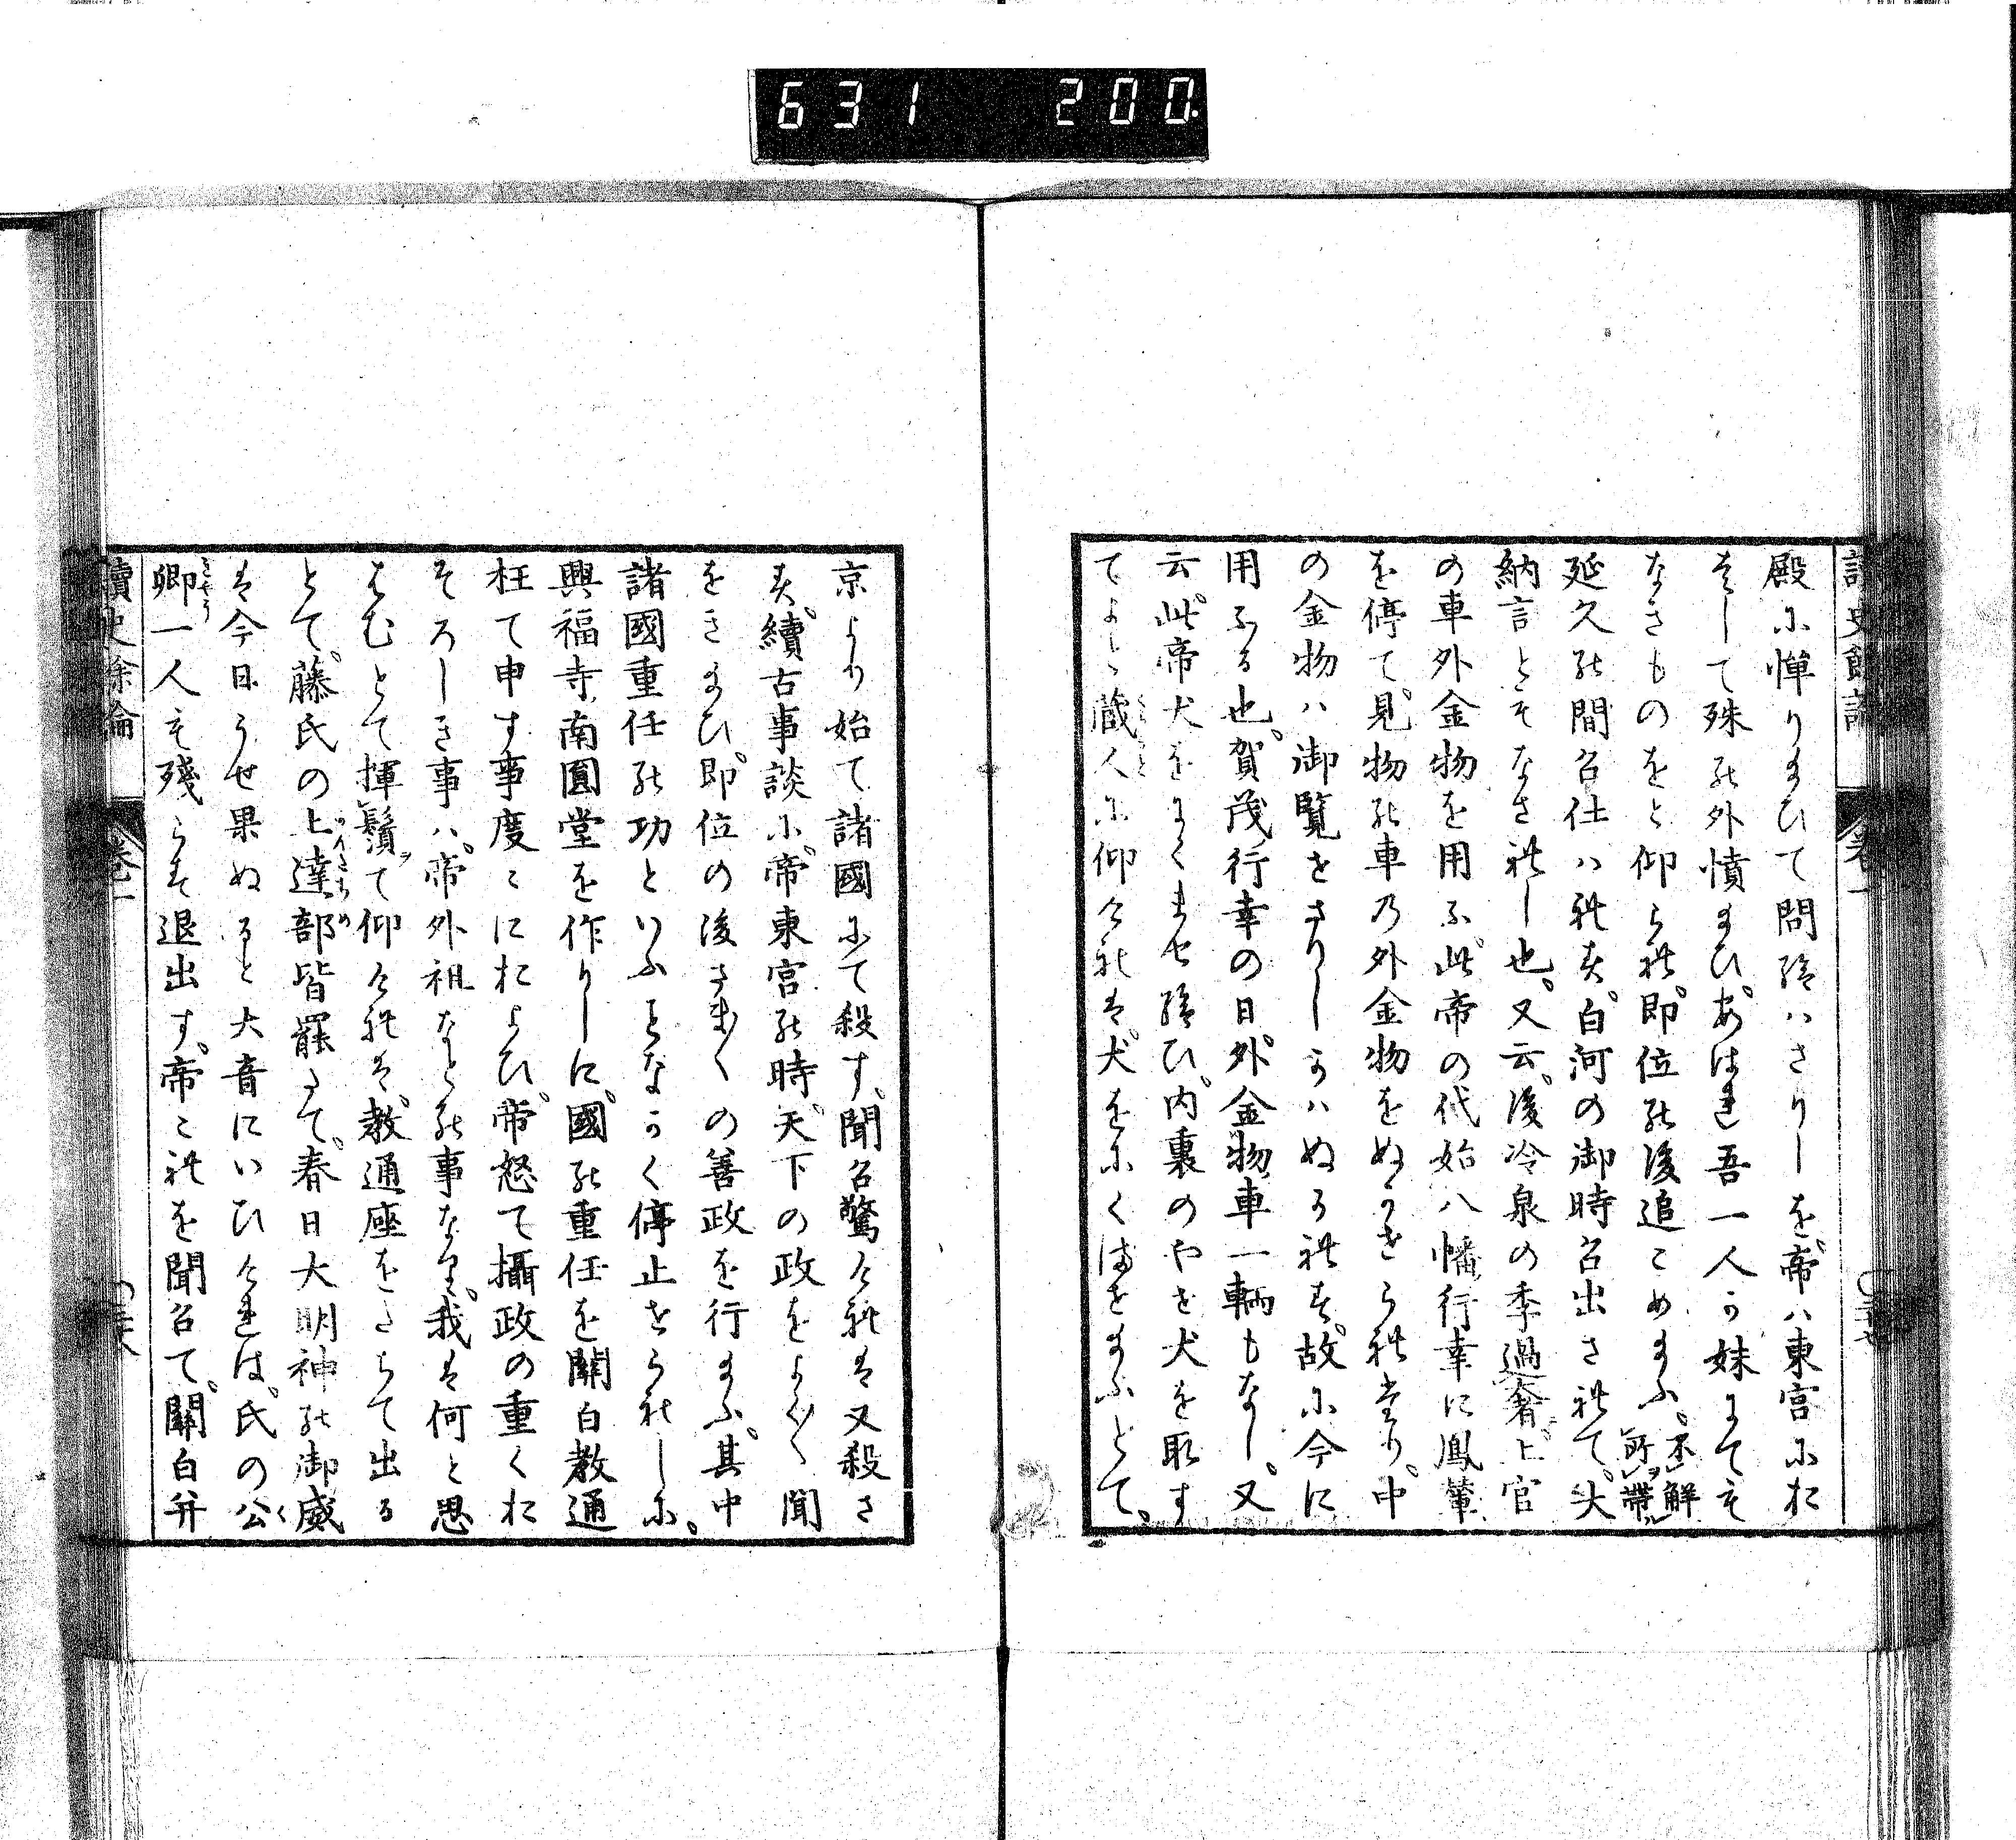 631 200.
讀史餘論 卷一
殿に憚り給ひて問給はさりしを帝ハ東宮にお
はして殊の外憤給ひあはれ吾一人か妹にても
なきものをと仰られ即位の後追こめ給ふ不解所帶
延久の間召仕ハれす白河の御時召出されて大
納言とそなされし也又云後冷泉の季過奢上官
の車外金物を用ふ此帝の代始八幡行幸に鳳輦
を停て見物の車の外金物をぬかせられたり中
の金物ハ御覽せさりしかハぬかれす故に今に
用ふる也賀茂行幸の日外金物車一輛もなし又
云此帝犬をにくませ給ひ内裏のやせ犬を取す
てよと蔵人に仰けれは犬をにくませ給ふとて
京より始て諸國にて殺す聞召驚けれは又殺さ
す續古事談に帝東宮の時天下の政をよく〳〵聞
をき給ひ即位の後さま〳〵の善政を行給ふ其中
諸國重任の功といふ事なかく停止せられしに
興福寺南圓堂を作りしに國の重任を關白教通
枉て申す事度々におよひ帝怒て攝政の重くお
そろしき事ハ帝外祖なとの事なり我は何と思
はむとて揮鬚て仰けれは教通座をたちて出る
とて藤氏の上達部皆罷たて春日大明神の御威
は今日うせ果ぬると大音にいひけれは氏の公
卿一人も殘らす退出す帝これを聞召て關白并
讀史餘論 卷一